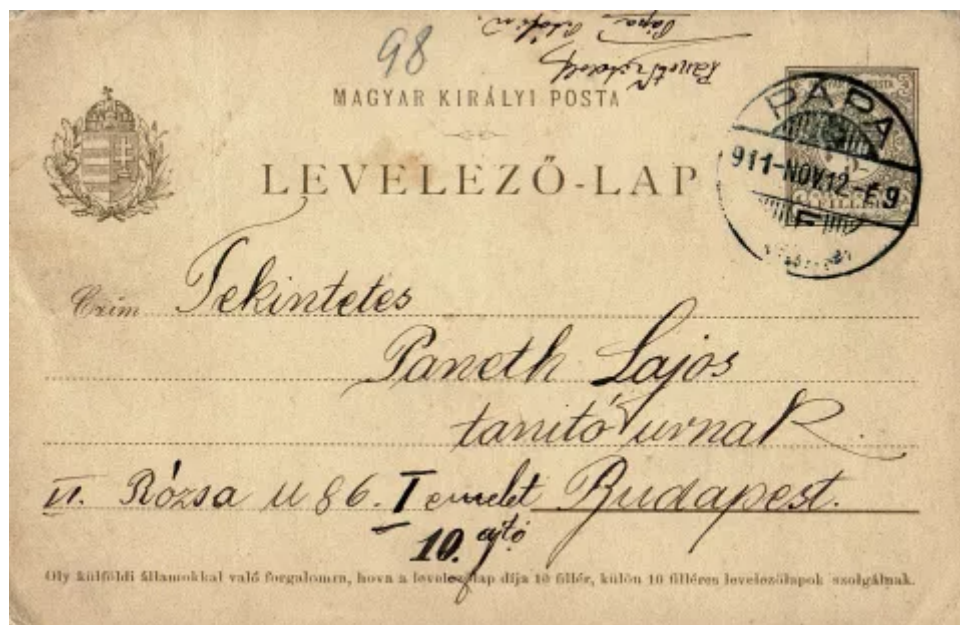 98
MAGYAR KIRÁLYI POSTA
LEVELEZŐ-LAP
PÁPA
911-NOV.12-É9
Czím Tekintetes
Paneth Lajos
tanító urnak
VI. Rózsa u 86. I emelet Budapest.
10. ajtó
Oly külföldi államokkal való forgalomra, hova a levelezőlap díja 10 fillér, külön 10 filléres levelezőlapok szolgálnak.